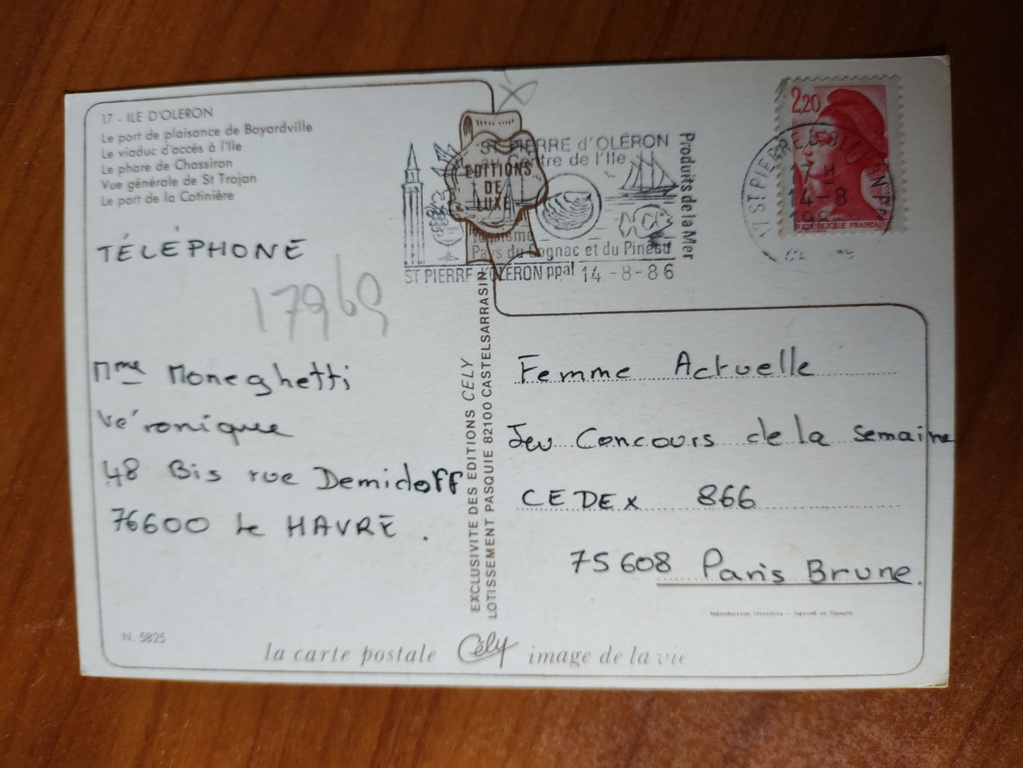 17 - ILE D'OLERON
Le port de plaisance de Boyardville
Le viaduc d'accés à l'Ile
Le phare de Chassiron
Vue générale de St Trojan
Le port de la Cotinière
TÉLÉPHONE
17969
Mme Moneghetti
Véronique
48 Bis rue Demidoff
76600 Le HAVRE.
N. 5825
EDITIONS
DE
LUXE
ST PIERRE d'OLÉRON
au Centre de l'Ile
Produits de la Mer
Tourisme
Pays du Cognac et du Pineau
ST PIERRE D'OLERON ppal 14-8-86
2,20
RÉPUBLIQUE FRANÇAISE
17 H
14-8
EXCLUSIVITE DES EDITIONS CELY
LOTISSEMENT PASQUIE 82100 CASTELSARRASIN
Femme Actuelle
Jeu Concours de la semaine
CEDEX 866
75608 Paris Brune.
Reproduction interdite - Imprimé en Espagne
la carte postale Cély image de la vie